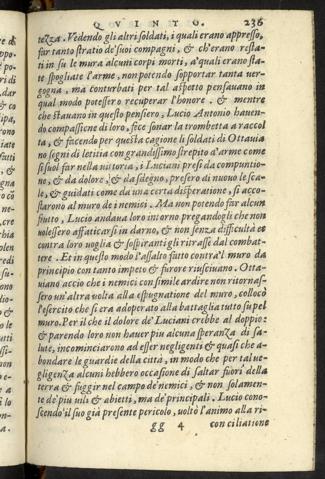 QVINTO. 236
tezza. Vedendo gli altri soldati, i quali erano appresso,
far tanto stratio de'suoi compagni, & ch'erano resta-
ti in su le mura alcuni corpi morti, a'quali erano sta-
te spogliate l'arme, non potendo sopportar tanta ver-
gogna, ma conturbati per tal aspetto pensauano in
qual modo potessero recuperar l'honore. & mentre
che stauano in questo pensiero, Lucio Antonio hauen-
do compassione di loro, fece sonar la trombetta a raccol
ta, & facendo per questa cagione li soldati di Ottauia
no segni di letitia con grandissimo strepito d'arme come
si suol far nella vittoria, i Luciani presi da compuntio-
ne, & da dolore, & da sdegno, presero di nuouo le sca-
le, & guidati come da una certa disperatione, si acco-
starono al muro de i nemici. Ma non potendo far alcun
frutto, Lucio andaua loro intorno pregandogli che non
volessero affaticarsi in darno, & non senza difficultà et
contra loro uoglia & sospiranti gli ritrasse dal combat-
tere. Et in questo modo l'assalto fatto contra'l muro da
principio con tanto impeto & furore riusciuano. Otta-
uiano accio che i nemici con simile ardire non ritornas-
sero un'altra uolta alla espugnatione del muro, collocò
l'esercito che si era adoperato alla battaglia tutto su pel
muro. Per il che il dolore de' Luciani crebbe al doppio:
& parendo loro non hauer piu alcuna speranza di sa-
lute, incominciarono ad esser negligenti & quasi che a-
bondare le guardie della città, in modo che per tal ne-
gligenza alcuni hebbero occasione di saltar fuori della
terra & fuggir nel campo de'nemici, & non solamen-
te de'piu uili & abietti, ma de' principali. Lucio cono-
scendo'il suo già presente pericolo, uoltò l'animo alla ri-
gg 4 conciliatione